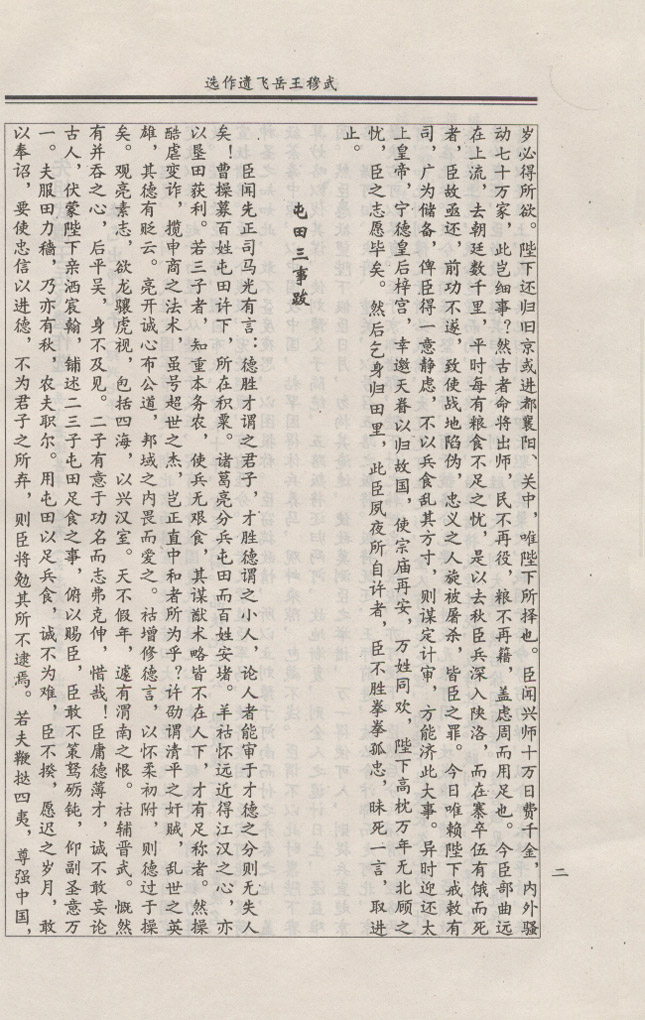 武穆王岳飞遗作选
岁必得所欲。陛下还归旧京或进都襄阳、关中，唯陛下所择也。臣闻兴师十万日费千金，内外骚
动七十万家，此岂细事？然古者命将出师，民不再役，粮不再籍，盖虑周而用足也。今臣部曲远
在上流，去朝廷数千里，平时每有粮食不足之忧，是以去秋臣兵深入陕洛，而在寨卒伍有饿而死
者，臣故亟还。前功不遂，致使战地陷伪，忠义之人旋被屠杀，皆臣之罪。今日唯赖陛下戒敕有
司，广为储备，俾臣得一意静虑，不以兵食乱其方寸，则谋定计审，方能济此大事。异时迎还太
上皇帝，宁德皇后梓宫，幸邀天眷以归故国，使宗庙再安，万姓同欢，陛下高枕万年无北顾之
忧，臣之志愿毕矣。然后乞身归田里，此臣夙夜所自许者，臣不胜拳拳孤忠，昧死一言，取进
止。
屯田三事跋
臣闻先正司马光有言：德胜才谓之君子，才胜德谓之小人，论人者能审于才德之分则无失人
矣！曹操募百姓屯田许下，所在积粟。诸葛亮分兵屯田而百姓安堵。羊祜怀远近得江汉之心，亦
以垦田获利。若三子者，知重本务农，使兵无艰食，其谋猷术略皆不在人下，才有足称者。然操
酷虐变诈，揽申商之法术，虽号超世之杰，岂正直中和者所为乎？许劭谓清平之奸贼，乱世之英
雄，其德有贬云。亮开诚心布公道，邦域之内畏而爱之。祜增修德言，以怀柔初附，则德过于操
矣。观亮素志，欲龙骧虎视，包括四海，以兴汉室。天不假年，遽有渭南之恨。祜辅晋武。慨然
有并吞之心，后平吴，身不及见。二子有意于功名而志弗克伸，惜哉！臣庸德薄才，诚不敢妄论
古人，伏蒙陛下亲洒宸翰，铺述二三子屯田足食之事，俯以赐臣，臣敢不策驽砺钝，仰副圣意万
一。夫服田力穑，乃亦有秋，农夫职尔。用屯田以足兵食，诚不为难，臣不揆，愿迟之岁月，敢
以奉诏，要使忠信以进德，不为君子之所弃，则臣将勉其所不逮焉。若夫鞭挞四夷，尊强中国，
二